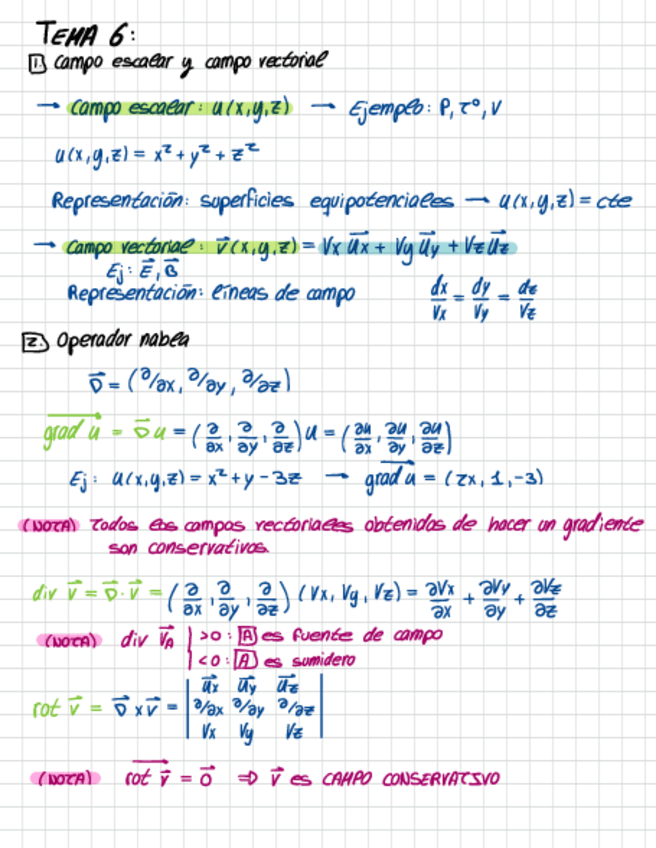 TEMA 6:
1. Campo escalar y campo vectorial
→ Campo escalar: u(x,y,z) → Ejemplo: P, Tº, V
u(x,y,z) = x² + y² + z²
Representación: superficies equipotenciales → u(x,y,z) = cte
→ Campo vectorial: v⃗(x,y,z) = Vx u⃗x + Vy u⃗y + Vz u⃗z
Ej: E⃗, B⃗
Representación: líneas de campo dx/Vx = dy/Vy = dz/Vz
2. Operador nabla
∇⃗ = (∂/∂x, ∂/∂y, ∂/∂z)
grad u = ∇⃗u = (∂/∂x, ∂/∂y, ∂/∂z) u = (∂u/∂x, ∂u/∂y, ∂u/∂z)
Ej: u(x,y,z) = x² + y - 3z → grad u = (2x, 1, -3)
(NOTA) Todos los campos vectoriales obtenidos de hacer un gradiente
son conservativos.
div v⃗ = ∇⃗·v⃗ = (∂/∂x, ∂/∂y, ∂/∂z) (Vx, Vy, Vz) = ∂Vx/∂x + ∂Vy/∂y + ∂Vz/∂z
(NOTA) div v⃗A | >0: A es fuente de campo
<0: A es sumidero
rot v⃗ = ∇⃗ x v⃗ = | u⃗x u⃗y u⃗z
∂/∂x ∂/∂y ∂/∂z
Vx Vy Vz |
(NOTA) rot v⃗ = 0⃗ ⇒ v⃗ es CAMPO CONSERVATIVO